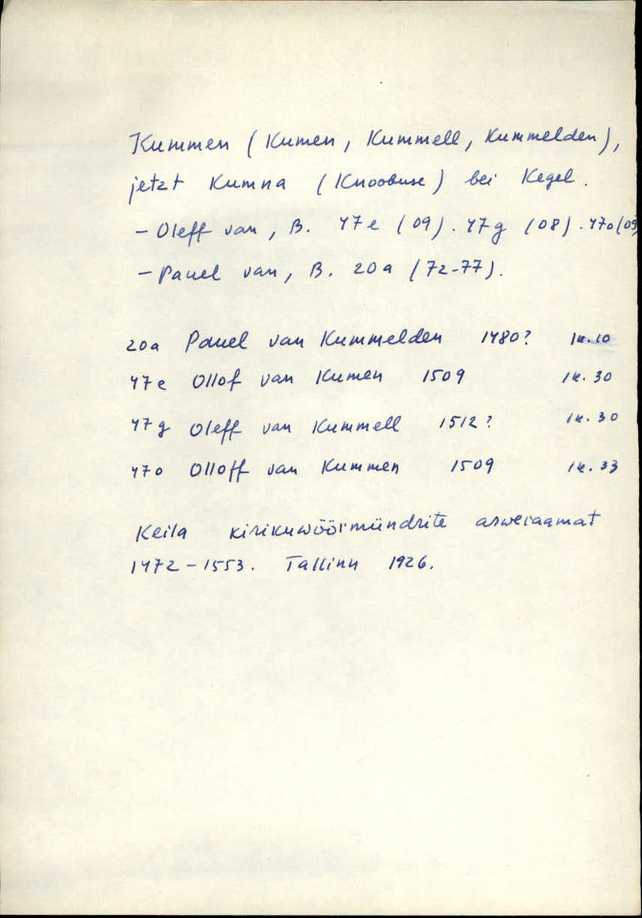 Kummen (Kumen, Kummell, Kummelden),
jetzt Kumna (Knoobuse) bei Kegel.
- Oleff van, B. 47e (09). 47g (08). 47o (09
- Pauel van, B. 20a (72-77).
20a Pauel van Kummelden 1480? lk. 10
47e Ollof van Kumen 1509 lk. 30
47g Oleff van Kummell 1512? lk. 30
47o Olloff van Kummen 1509 lk. 33
Keila kirikuwöörmündrite arweraamat
1472-1553. Tallinn 1926.